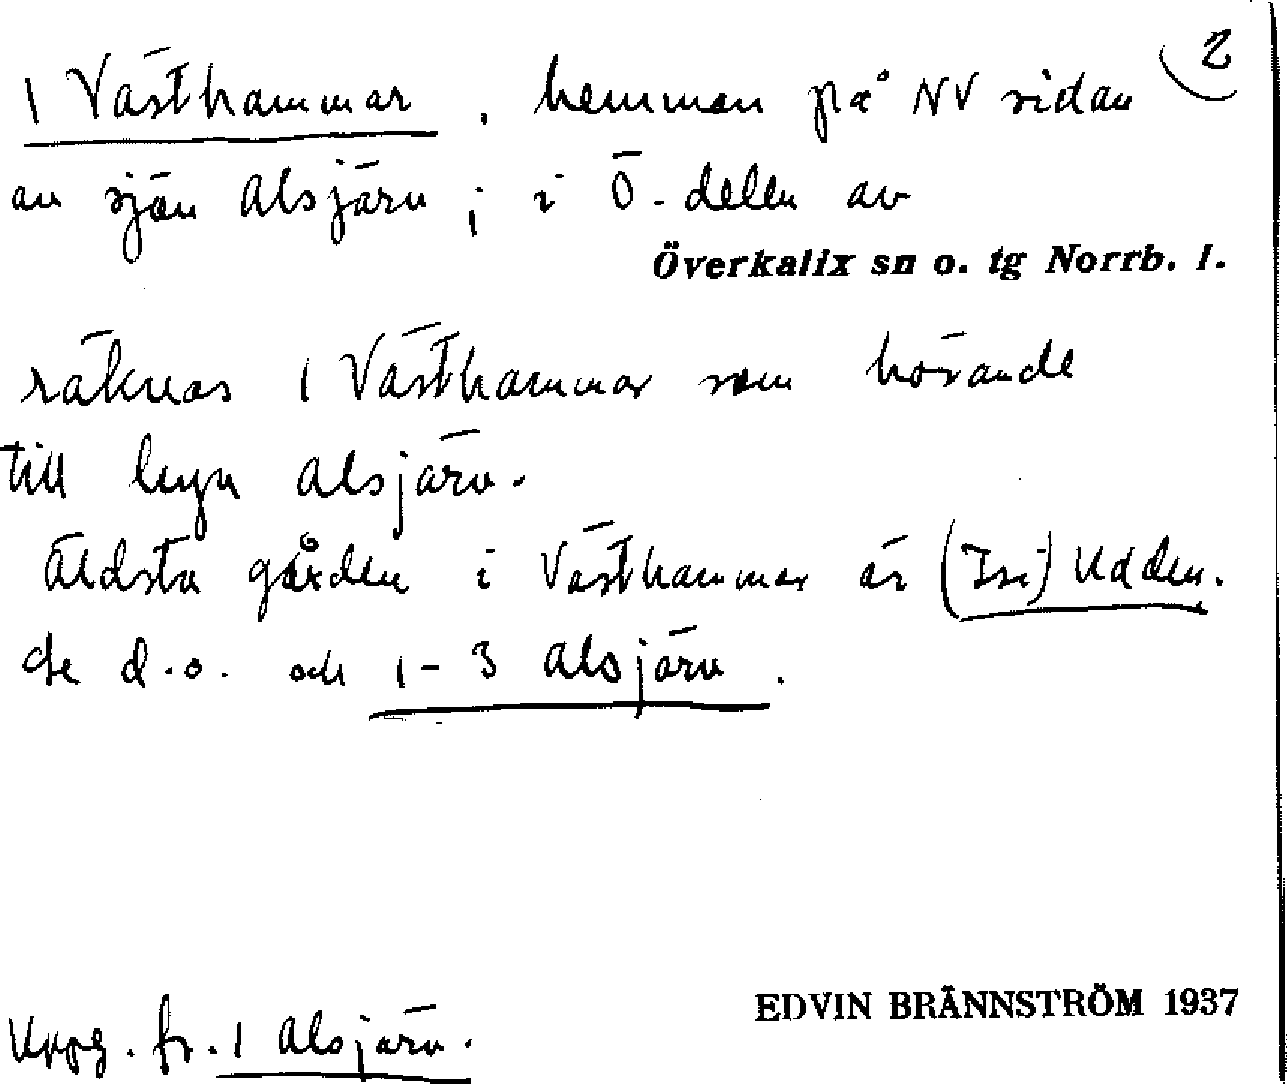 2
1 Västhammar, hemman på NV sidan
av sjön Alsjärv; i Ö-delen av
Överkalix sn o. tg Norrb. l.
räknas 1 Västhammar som hörande
till byn Alsjärv.
Äldsta gården i Västhammar är (Isi) Udden.
Se d.o. och 1-3 Alsjärv.
EDVIN BRÄNNSTRÖM 1937
Uppg. fr. 1 Alsjärv.